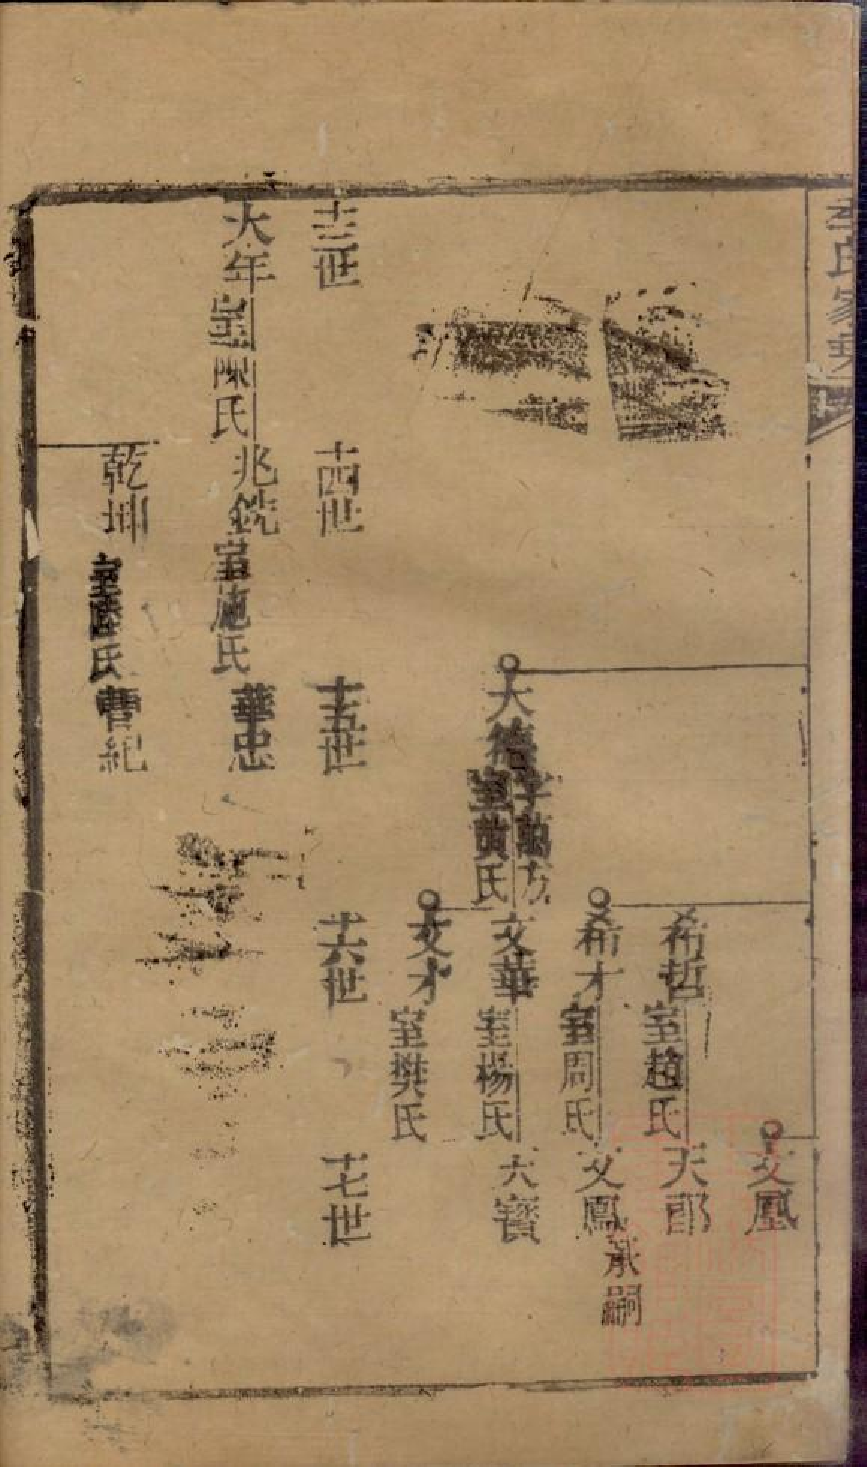 文鳳
希哲 室趙氏 天郎
希才 室周氏 文鳳 承嗣
大德 字萬方 室黃氏
文華 室楊氏 六寳
文才 室樊氏
十三世 十四世 十五世 十六世 十七世
大年 室陳氏 兆銑 室施氏 華忠
乾坤 室陸氏 曹紀